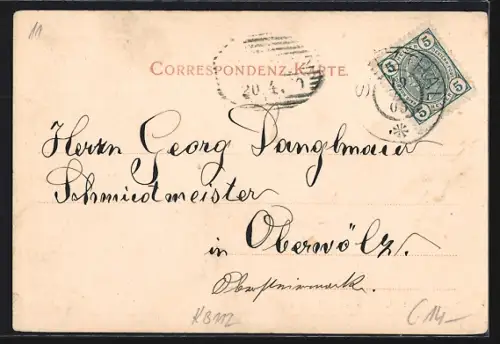 11
CORRESPONDENZ-KARTE.
20.4.
5 5 5
Herrn Georg Danglmaier
Schmiedmeister
in Oberwölz.
Obersteiermark.
KB112
14-